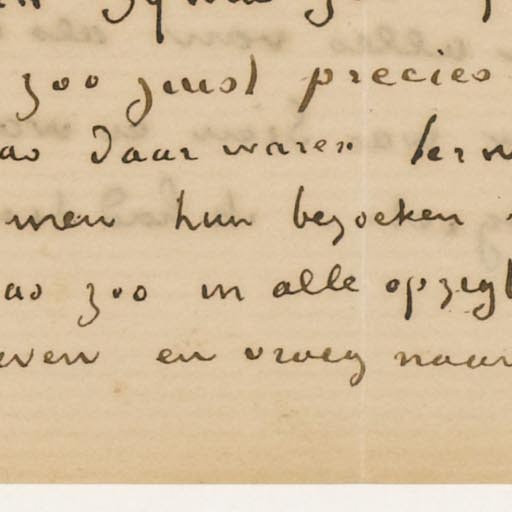 zoo juist precies
as daar waren
men hun bezoeken
as zoo in alle opzigt
even en vroeg naar